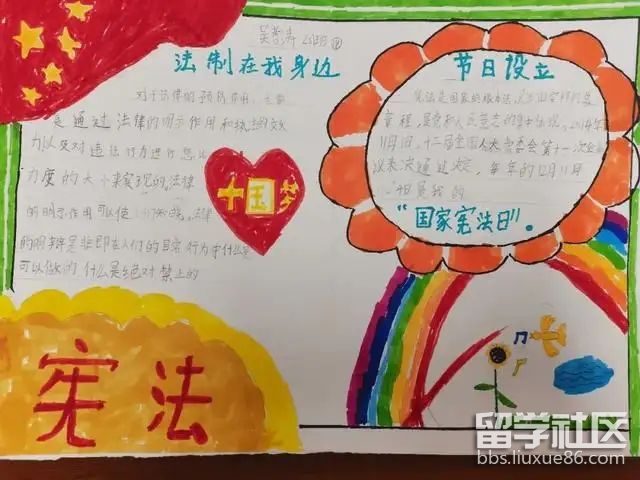 法制在我身边
对于法律的预防作用,主要
是通过法律的明示作用和执法的效
力以及对违法行为进行惩
力度的大小来实现的,法律
的明示作用可以使
的明辨是非即在人们的日常行为中什么是
可以做的什么是绝对禁上的
中国梦
宪法
节日设立
宪法是国家的根本法,
章程,是党和人民意志的集中体现。2014年
11月1日,十二届全国人大常委会第十一次会
议表决通过决定,每年的12月11日
“国家宪法日”。
留学社区
bbs.liuxue86.com